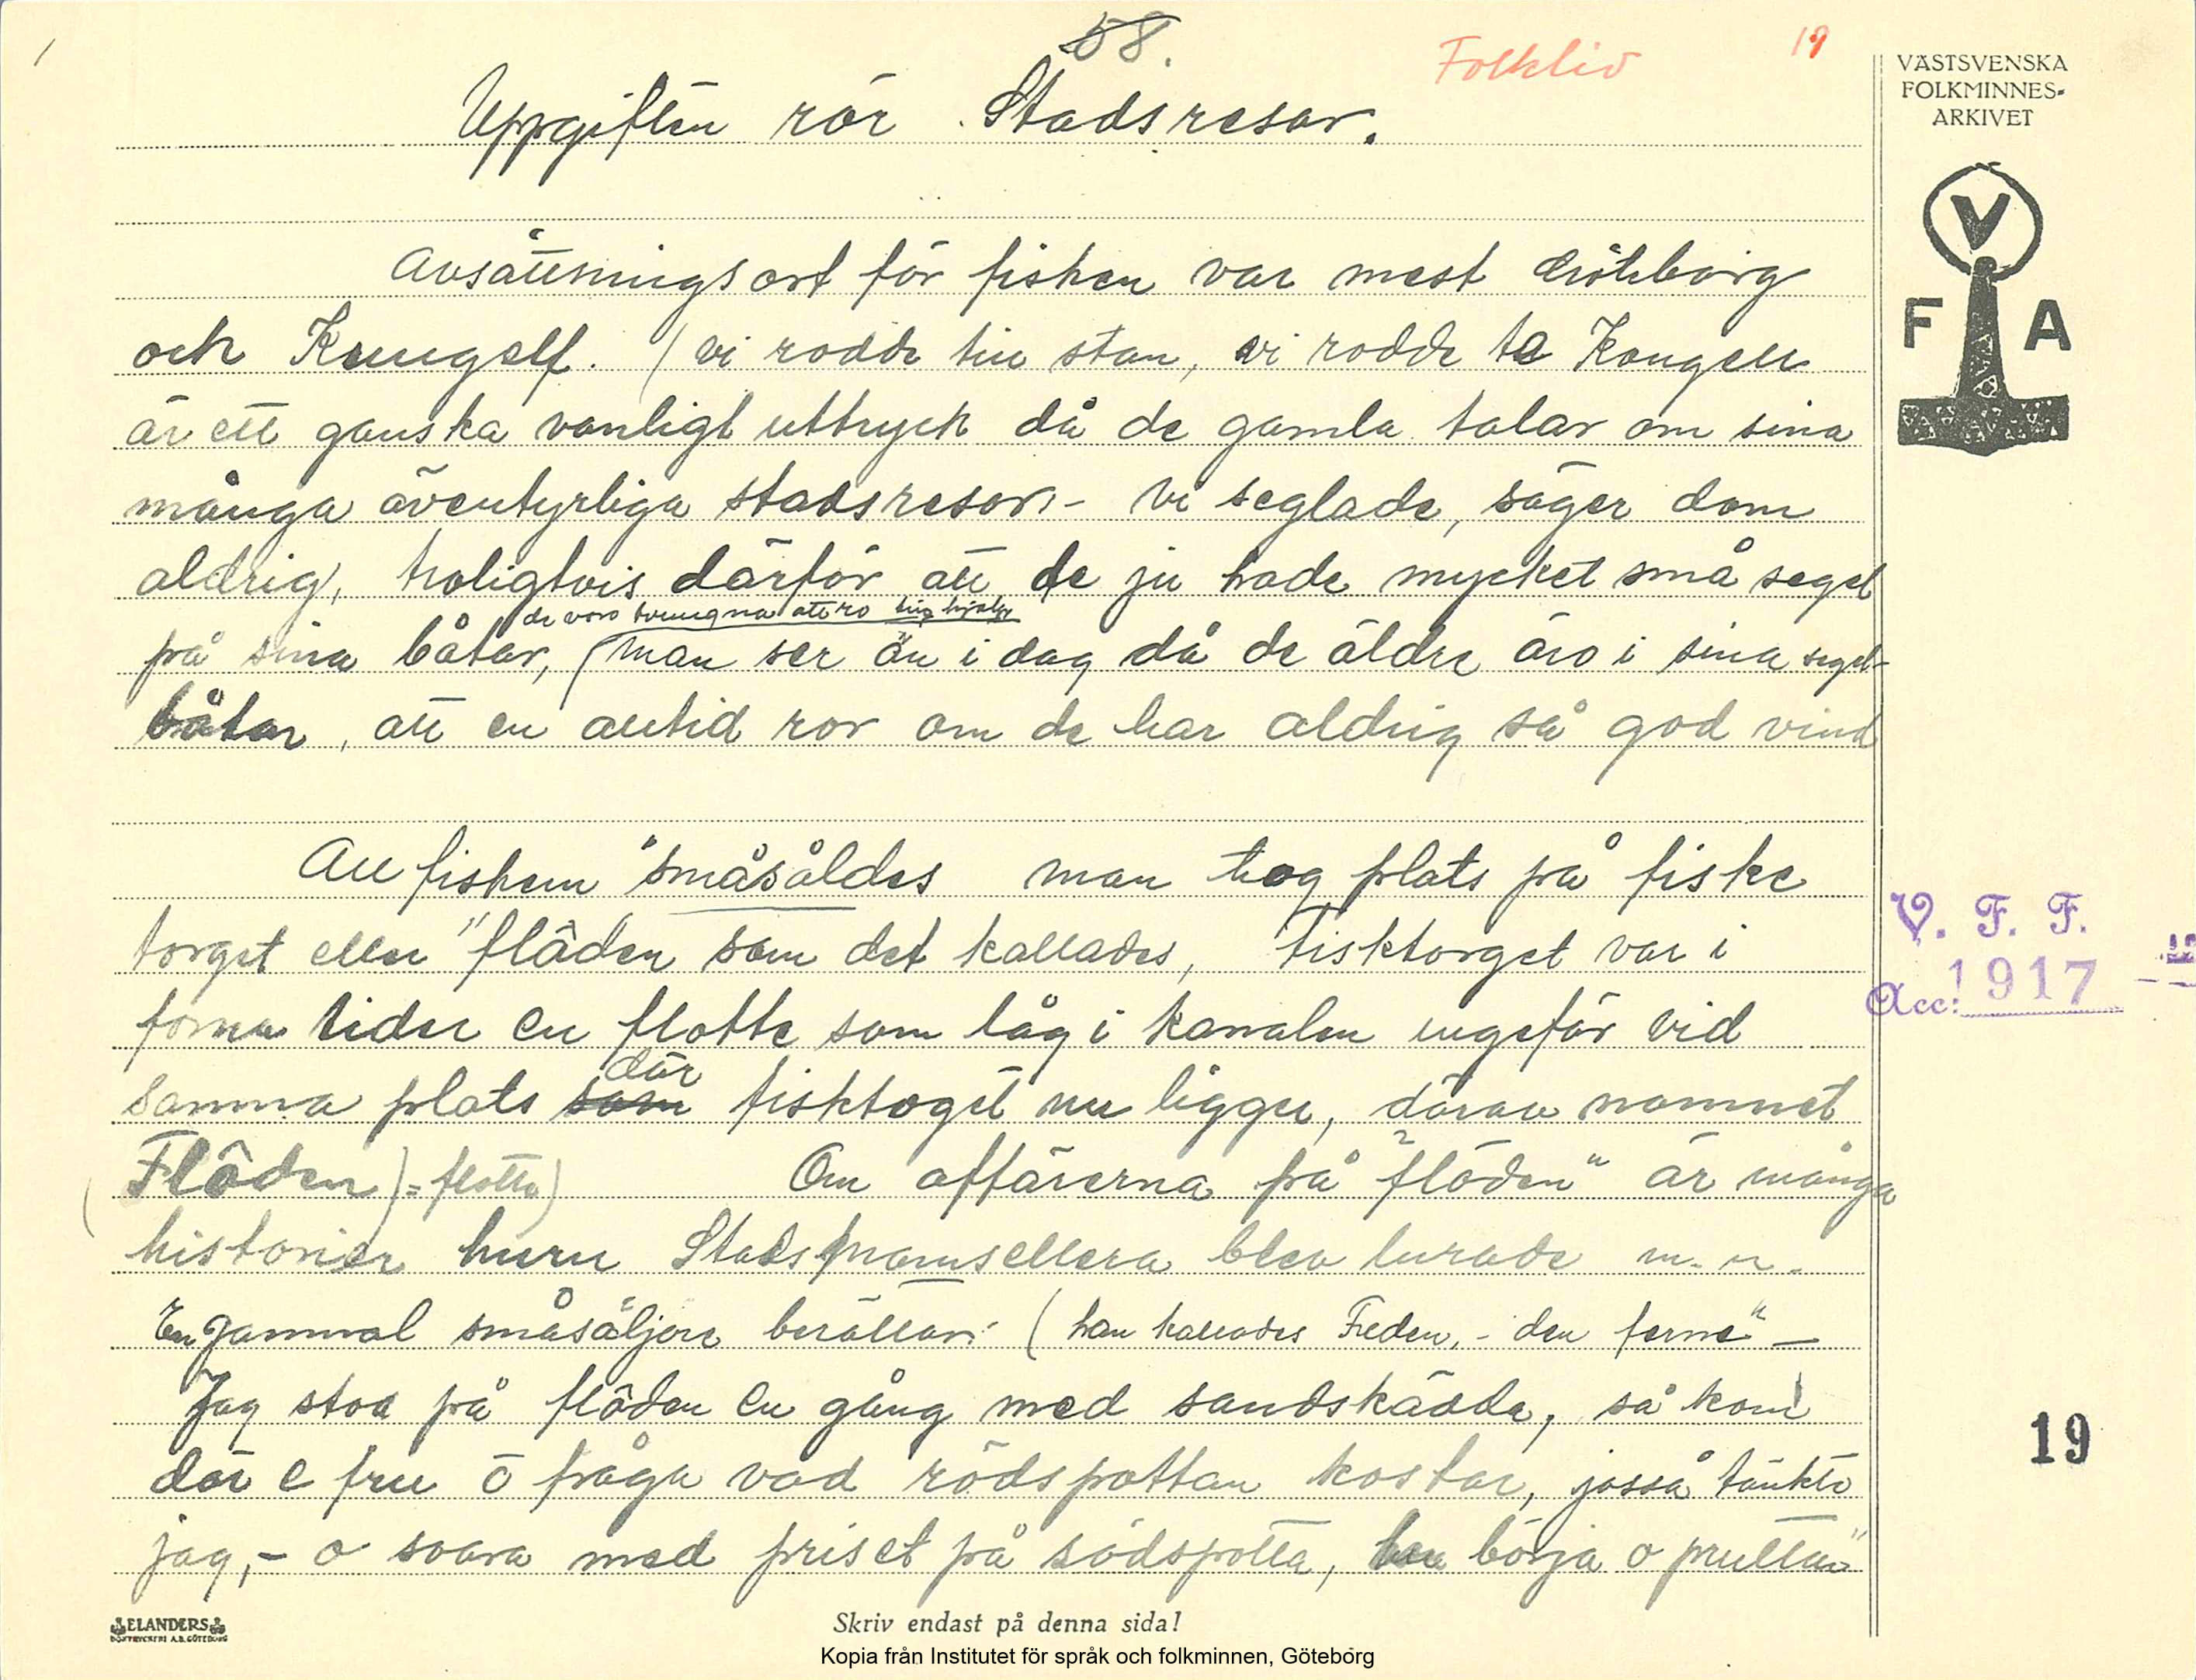 58.
Folkliv
19
Uppgiften rör Stadsresor.
VÄSTSVENSKA
FOLKMINNES-
ARKIVET
V
F A
Avsättningsort för fisken var mest Götebårg
och Kungelf. (vi rodde till stan, vi rodde te Kongell
är ett ganska vanligt uttryck då de gamla talar om sina
många äventyrliga stadsresor - vi seglade, säger dom
aldrig, troligtvis därför att de ju hade mycket små segel
de voro tvungna att ro till hjälp
på sina båtar, (man ser än i dag då de äldre äro i sina segel-
båtar, att en alltid ror om de har aldrig så god vind
All fisken "småsåldes man tog plats på fiske
torget eller "flåden som det kallades, Fisktorget var i
forna tider en flotte som låg i kanalen ungefär vid
där
samma plats som fisktoget nu ligger, därav namnet
(Flåden) = flotte) Om affärerna på "flöden" är många
historier huru Stadsmamsellera blev lurade m. m.
En gammal småsäljare berättar: (han kallades Freden, - den ferme" -
Jag stod på flåden en gång med sandskädda, så kom
där e fru ö fråga vad rödspottan kostar, jasså tänkte
jag, - o svara med priset på södspotta, hu börja o prutta"
V. F. F.
Acc: 1917
19
ELANDERS
BOKTRYCKERI A.B. GÖTEBORG
Skriv endast på denna sida!
Kopia från Institutet för språk och folkminnen, Göteborg